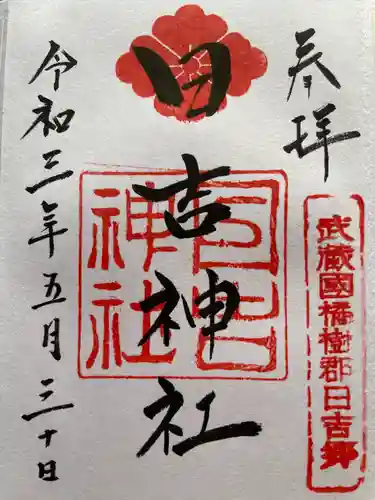 奉拝
武蔵國橘樹郡日吉郷
日吉神社
日吉神社
令和三年五月三十日